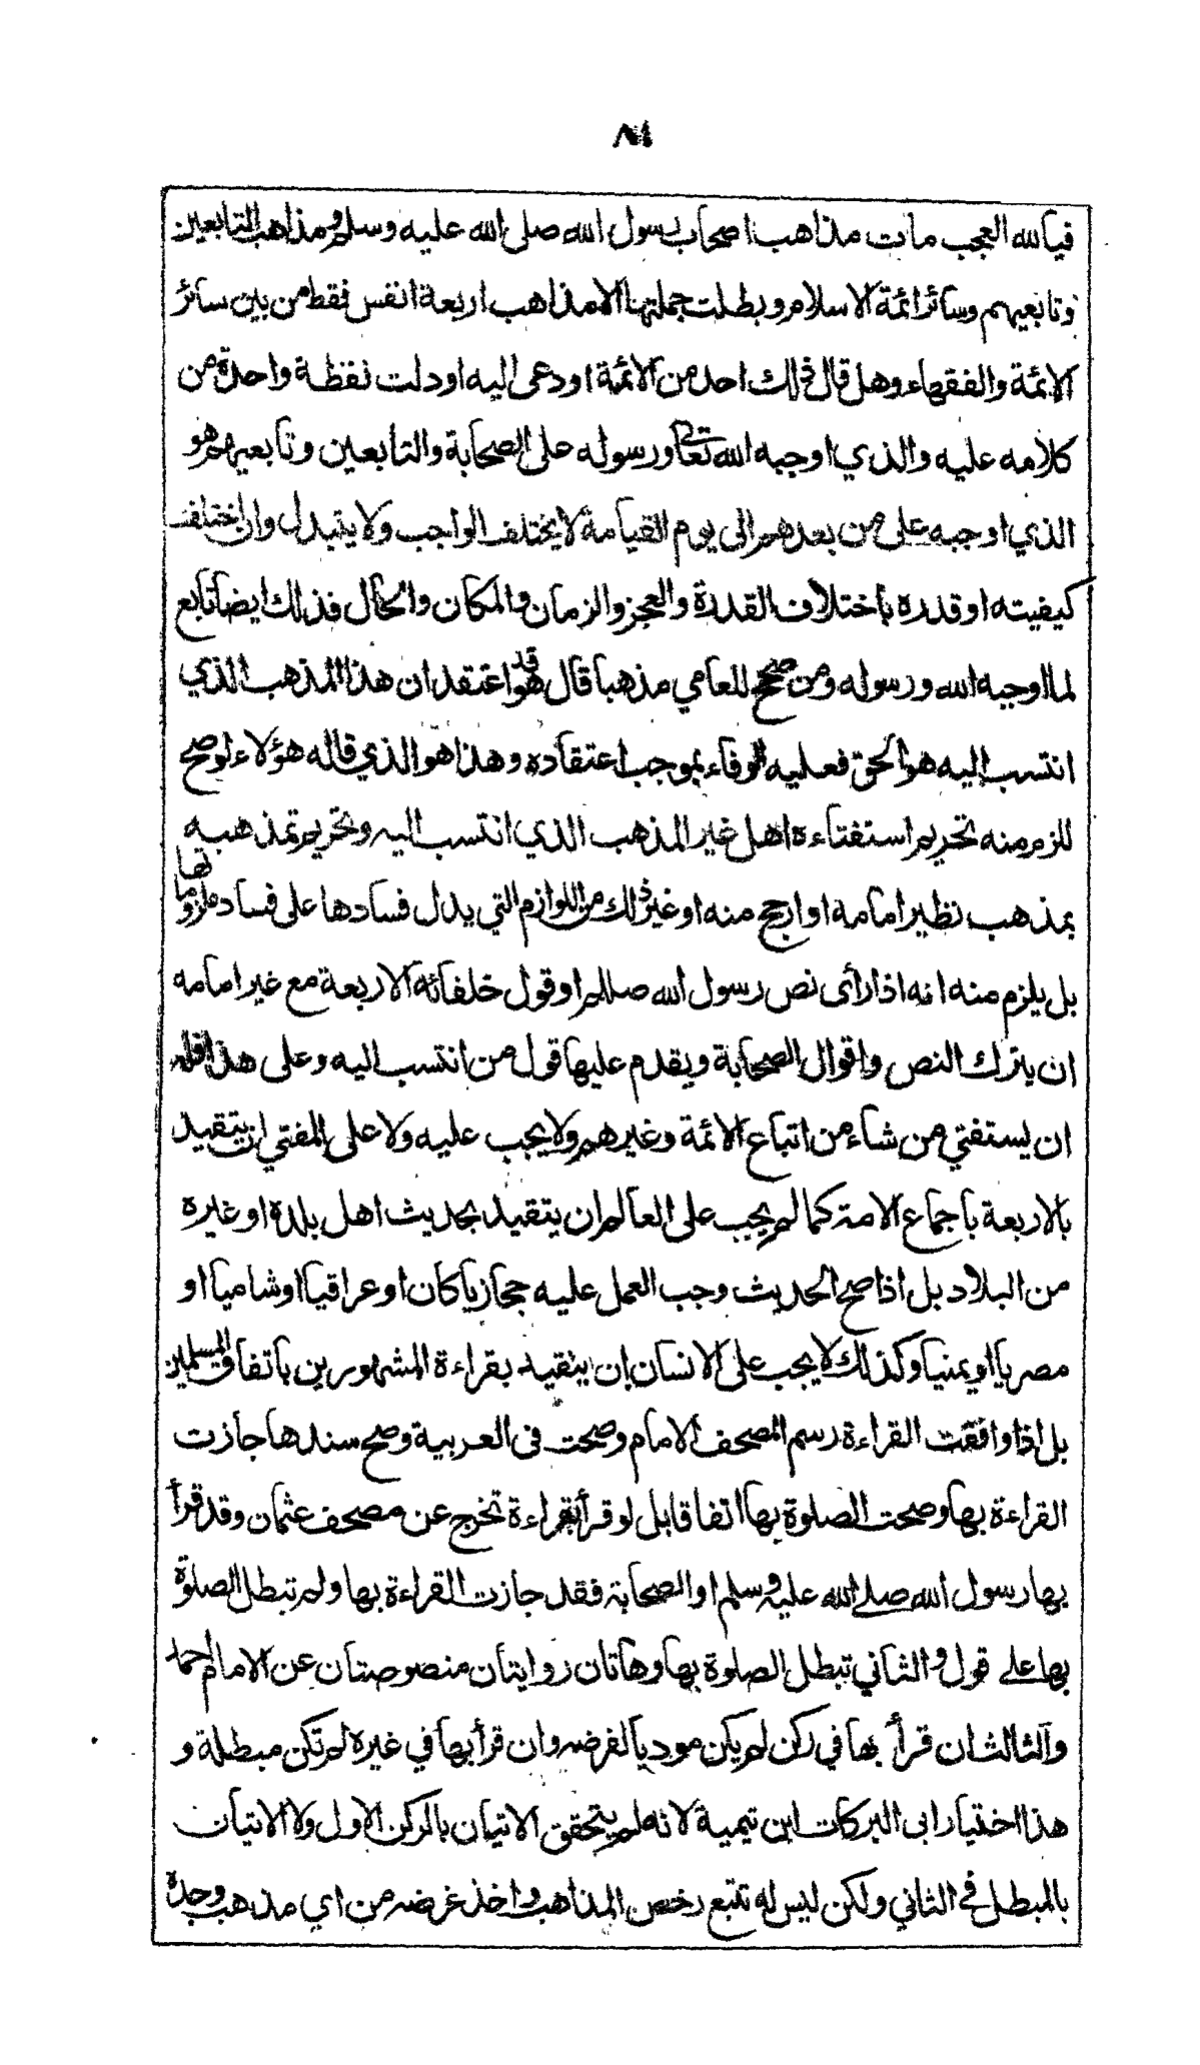 ٨٤
فيالله العجب ماتت مذاهب اصحاب رسول الله صلى الله عليه وسلم ومذاهب التابعين
وتابعيهم وسائر ائمة الاسلام وبطلت جملتها الا مذاهب اربعة انفس فقط من بين سائر
الائمة والفقهاء وهل قال ذلك احد من الائمة او دعى اليه او دلت لفظة واحدة من
كلامه عليه والذي اوجبه الله تعالى ورسوله على الصحابة والتابعين وتابعيهم هو
الذي اوجبه على من بعدهم الى يوم القيامة لا يختلف الواجب ولا يتبدل وان اختلف
كيفيته او قدره باختلاف القدرة والعجز والزمان والمكان والحال فذلك ايضا تابع
لما اوجبه الله ورسوله ومن صحح للعامي مذهبا قال هو قد اعتقد ان هذا المذهب الذي
انتسب اليه هو الحق فعليه الوفاء بموجب اعتقاده وهذا هو الذي قاله هؤلاء لو صح
للزم منه تحريم استفتاءه اهل غير المذهب الذي انتسب اليه وتحريم تمذهبه
بمذهب نظير امامه او ارجح منه او غير ذلك من اللوازم التي يدل فسادها على فساد ملزوماتها
بل يلزم منه انه اذا رأى نص رسول الله صللم او قول خلفائه الاربعة مع غير امامه
ان يترك النص واقوال الصحابة ويقدم عليها قول من انتسب اليه وعلى هذا فله
ان يستفتي من شاء من اتباع الائمة وغيرهم ولا يجب عليه ولا على المفتي ان يتقيد
بالاربعة باجماع الامة كما لم يجب على العالم ان يتقيد بحديث اهل بلده او غيره
من البلاد بل اذا صح الحديث وجب العمل عليه حجازيا كان او عراقيا او شاميا او
مصريا او يمنيا وكذلك لا يجب على الانسان ان يتقيد بقراءة المشهورين باتفاق المسلمين
بل اذا وافقت القراءة رسم المصحف الامام وصحت في العربية وصح سندها جازت
القراءة بها وصحت الصلوة بها اتفاقا بل لو قرأ بقراءة تخرج عن مصحف عثمان وقد قرأ
بها رسول الله صلى الله عليه وسلم او الصحابة فقد جازت القراءة بها ولم تبطل الصلوة
بها على قول والثاني تبطل الصلوة بها وهاتان روايتان منصوصتان عن الامام احمد
والثالث ان قرأ بها في ركن لم يكن موديا لفرضه وان قرأ بها في غيره لم تكن مبطلة و
هذا اختيار ابى البركات ابن تيمية لانه لم يتحقق الاتيان بالركن الاول ولا الاتيان
بالمبطل في الثاني ولكن ليس له تتبع رخص المذاهب واخذ غرضه من اي مذهب وجده